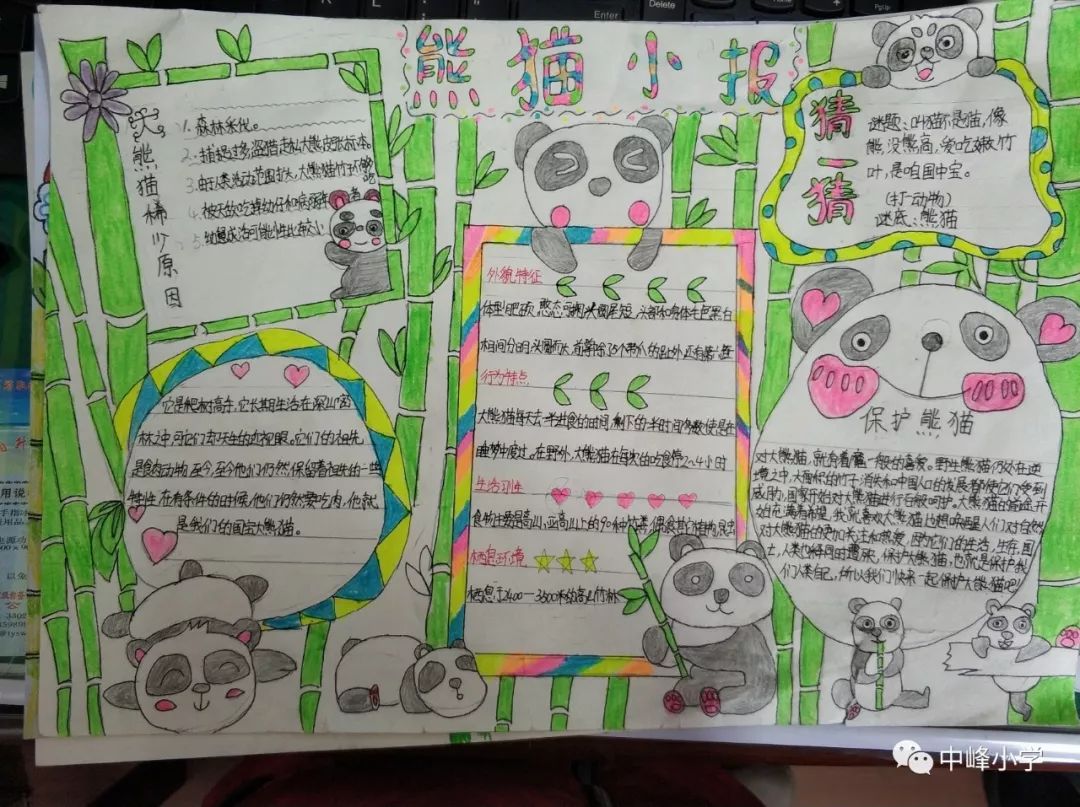 熊猫小报
大熊猫稀少原因
1. 森林采伐。
2. 捕捉过多,盗猎走私大熊
3. 由于人类活动范围扩大,大熊猫竹子不够吃
4. 被天敌吃掉幼仔和病弱
5. 幼崽成活可能性比较小
猜一猜
谜题:叫猫不是猫,像
熊没熊高,爱吃嫩竹
叶,是咱国中宝。
(打一动物)
谜底:熊猫
外貌特征
体型肥硕 憨态 头圆尾短,头部和身体毛色黑白
相间分明
行为特点
大熊猫每天去一半进食的时间,剩下的一半时间多数便是在
睡梦中度过,在野外,大熊猫在每次的吃食停2~4小时
生活习性
食物主要是高山、亚高山上的90种竹类,偶食其它植物,昆虫
栖息环境
栖息于2400—3500米的高山竹林
它是爬树高手,它长期生活在深山密
林之中,可它们却天生的近视眼。它们的祖先
是食肉动物,至今,至今他们仍然保留着祖先的一些
特性,在有条件的时候,他们仍然要吃肉,他就
是我们的国宝大熊猫。
保护熊猫
对大熊猫,就有着 一般的喜爱。野生熊猫仍处在逆
境之中,大面积的竹子消失和中国人口的发展都使它们受到
威胁,国家开始对大熊猫进行 呵护。大熊猫的命运开
始在 满布希望,我喜欢大熊猫
对大熊猫的更加关注和热爱,因为它们的生活,生存,国
土,人类也将同时 保护大熊猫,也就是保护我
们人类自己,所以我们快来一起保护大熊猫吧!
Enter
Delete
中峰小学